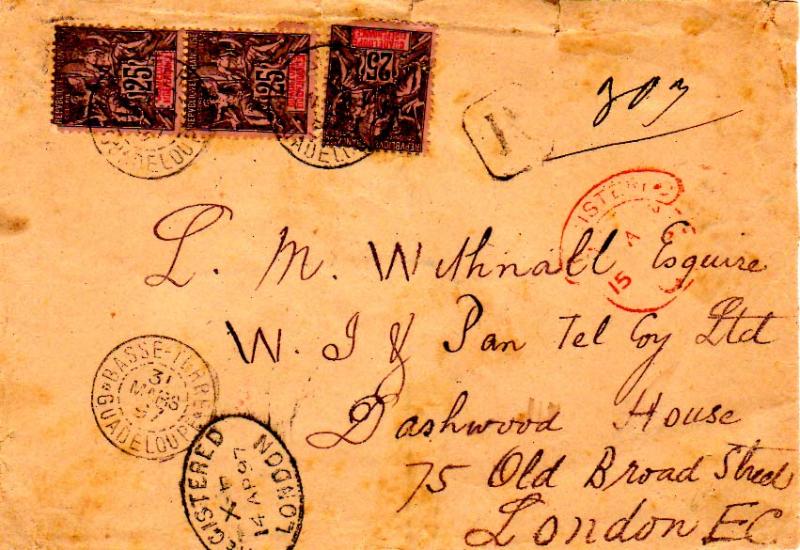 25 25 25
GUADELOUPE
R
303
L. M. Withnall Esquire
W. I & Pan Tel Coy Ltd
Dashwood House
75 Old Broad Street
London EC
BASSE-TERRE
31
MARS
97
GUADELOUPE
REGISTERED
14 AP 97
LONDON
15 A